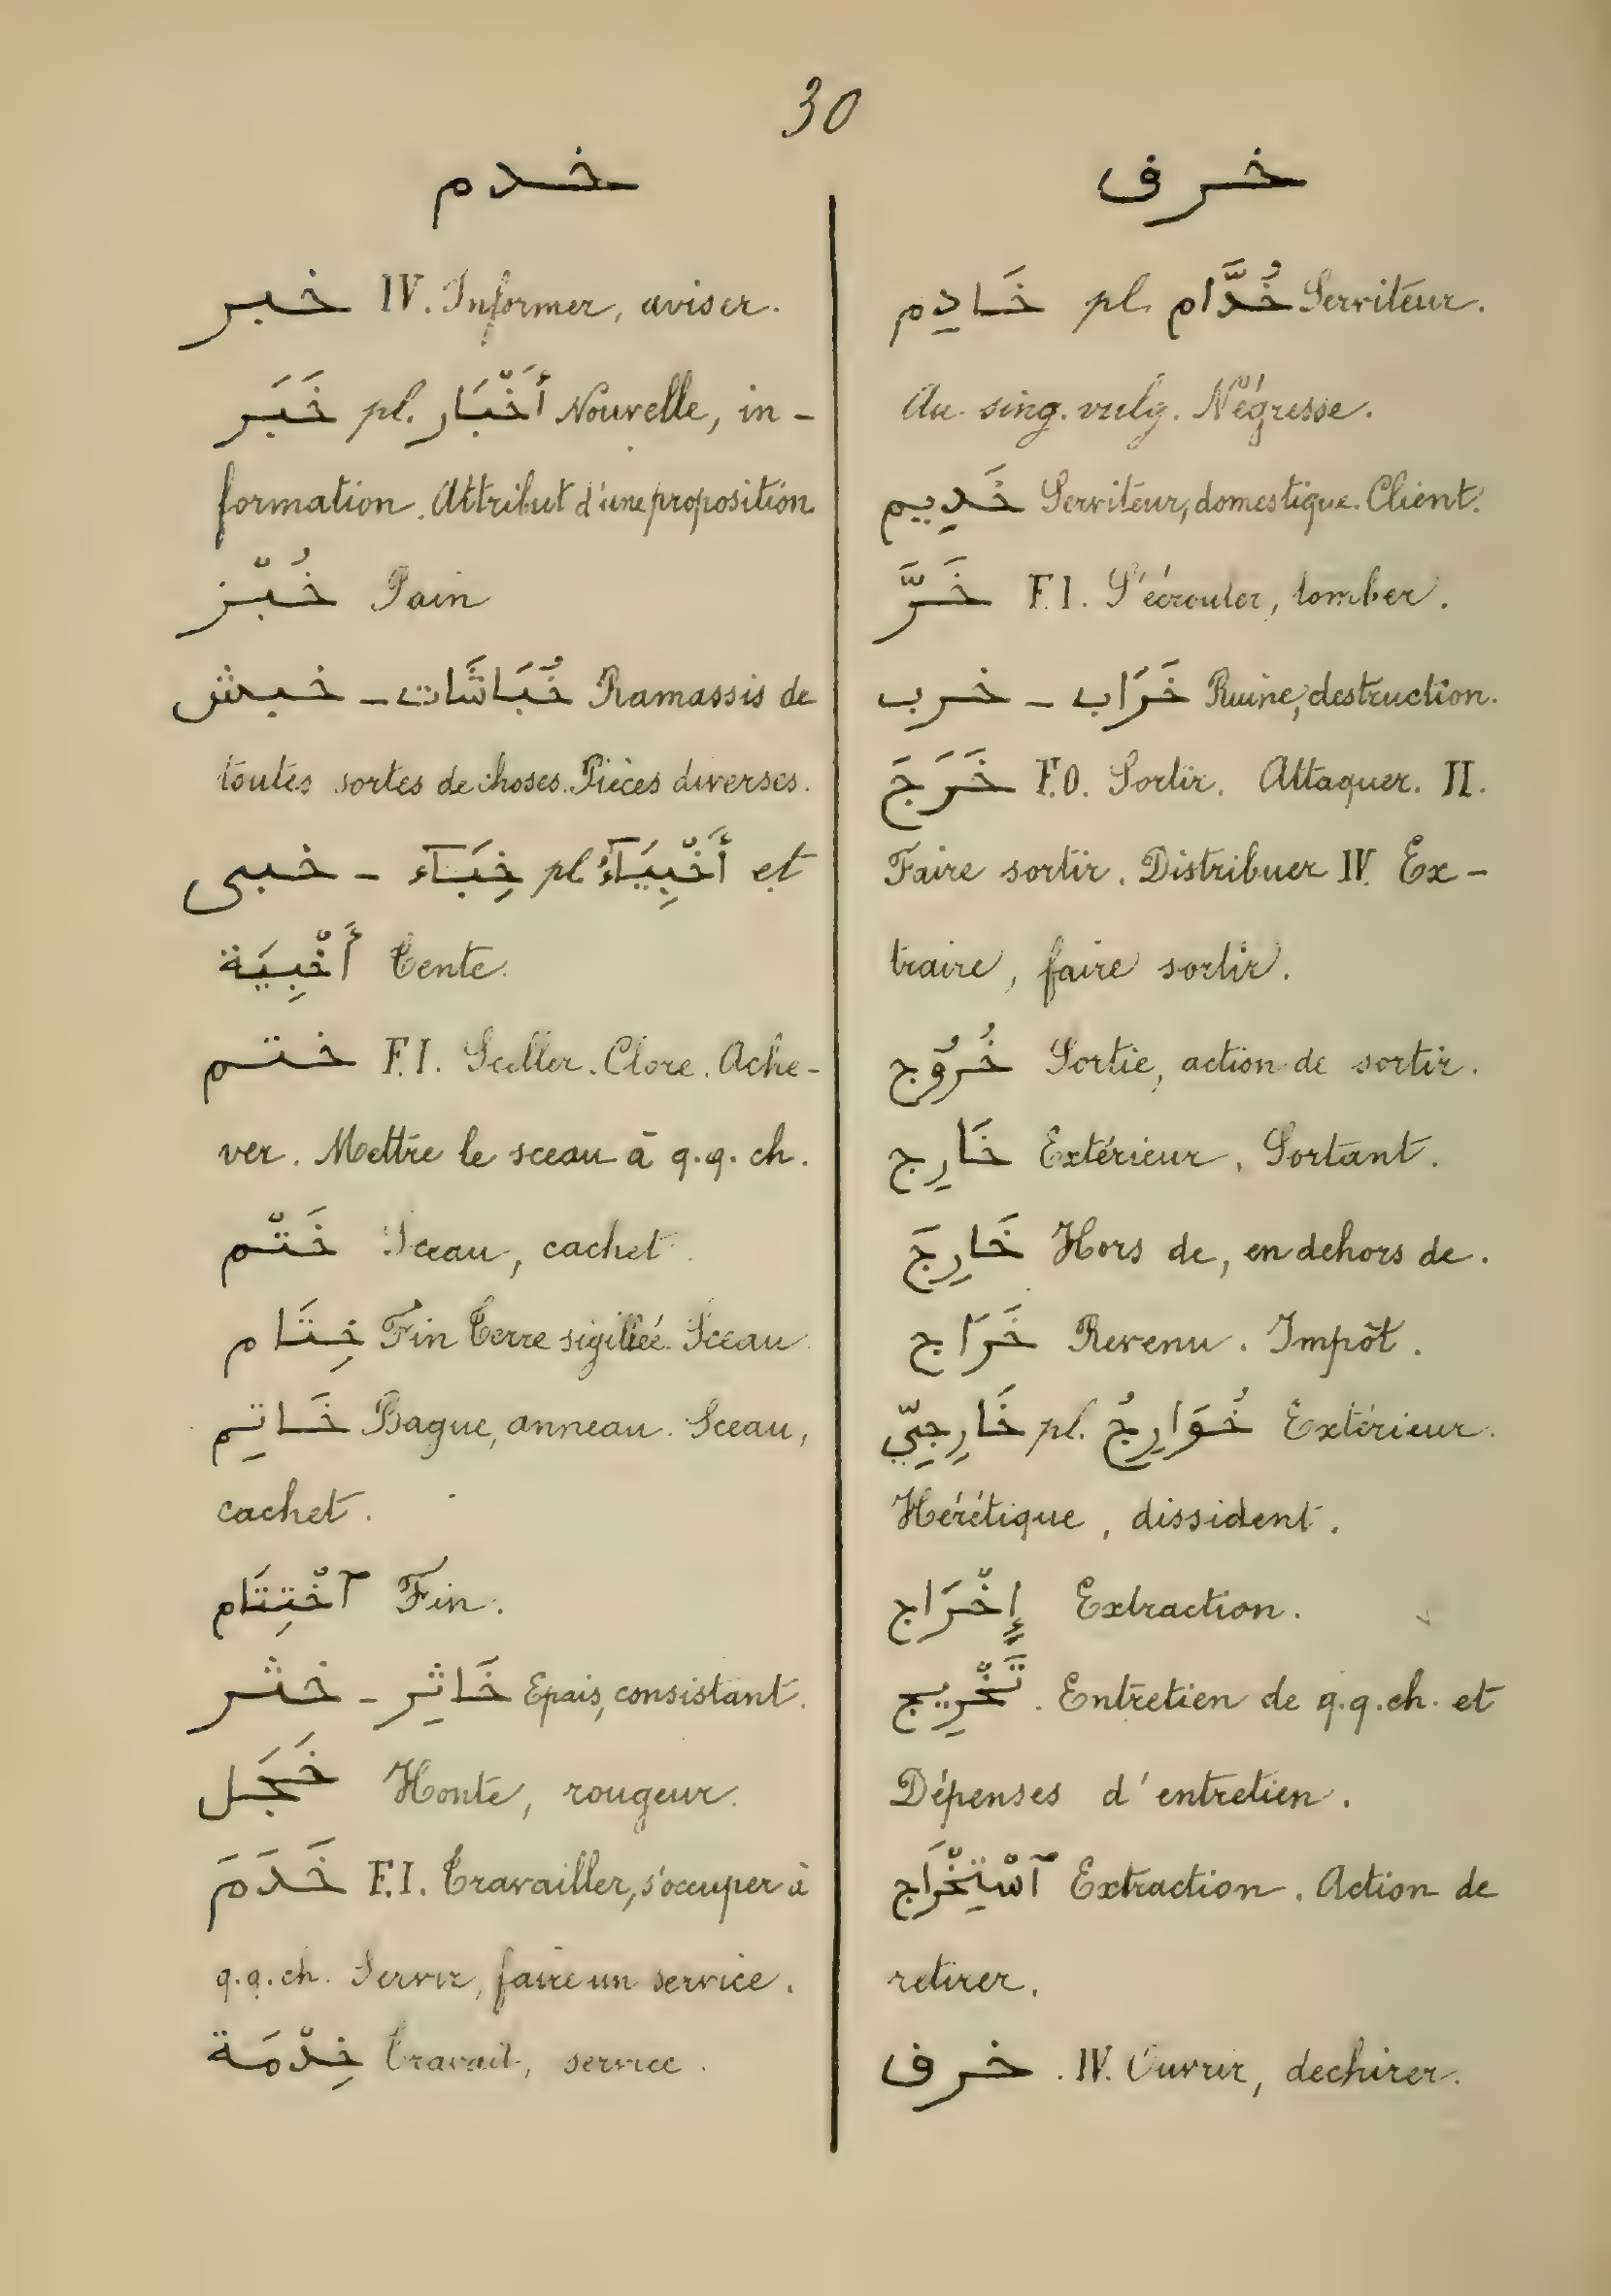 30
خدم
خبر IV. Informer, aviser.
خَبَر pl. أَخْبَار Nouvelle, in-
formation. Attribut d'une proposition
خُبْز Pain
خبش - خُبَاشَّات Ramassis de
toutes sortes de choses. Pièces diverses.
خبى - خِبَآء pl أَخْبِيَآءُ et
أَخْبِيَة Tente.
ختم F.I. Sceller. Clore. Ache-
ver. Mettre le sceau à q.q. ch.
خَتْم Sceau, cachet.
خِتَام Fin Terre sigillée. Sceau.
خَاتِم Bague, anneau. Sceau,
cachet.
آخْتِتَام Fin.
خثر - خَاثِر Epais, consistant.
خَجَل Honte, rougeur.
خَدَمَ F.I. Travailler, s'occuper à
q.q.ch. Servir, faire un service.
خِدْمَة Travail, service.
خرف
خَادِم pl. خُدَّام Serviteur.
Au sing. vulg. Négresse.
خَدِيم Serviteur, domestique. Client.
خَرَّ F.I. S'écrouler, tomber.
خرب - خَرَاب Ruine, destruction.
خَرَجَ F.O. Sortir. Attaquer. II.
Faire sortir. Distribuer IV. Ex-
traire, faire sortir.
خُرُوج Sortie, action de sortir.
خَارِج Extérieur. Sortant.
خَارِجَ Hors de, en dehors de.
خَرَاج Revenu. Impôt.
خَارِجِيّ pl. خُوَارِجُ Extérieur.
Hérétique, dissident.
إِخْرَاج Extraction.
تَخْرِيج. Entretien de q.q.ch. et
Dépenses d'entretien.
آسْتِخْرَاج Extraction. Action de
retirer.
خرف. IV. Ouvrir, dechirer.